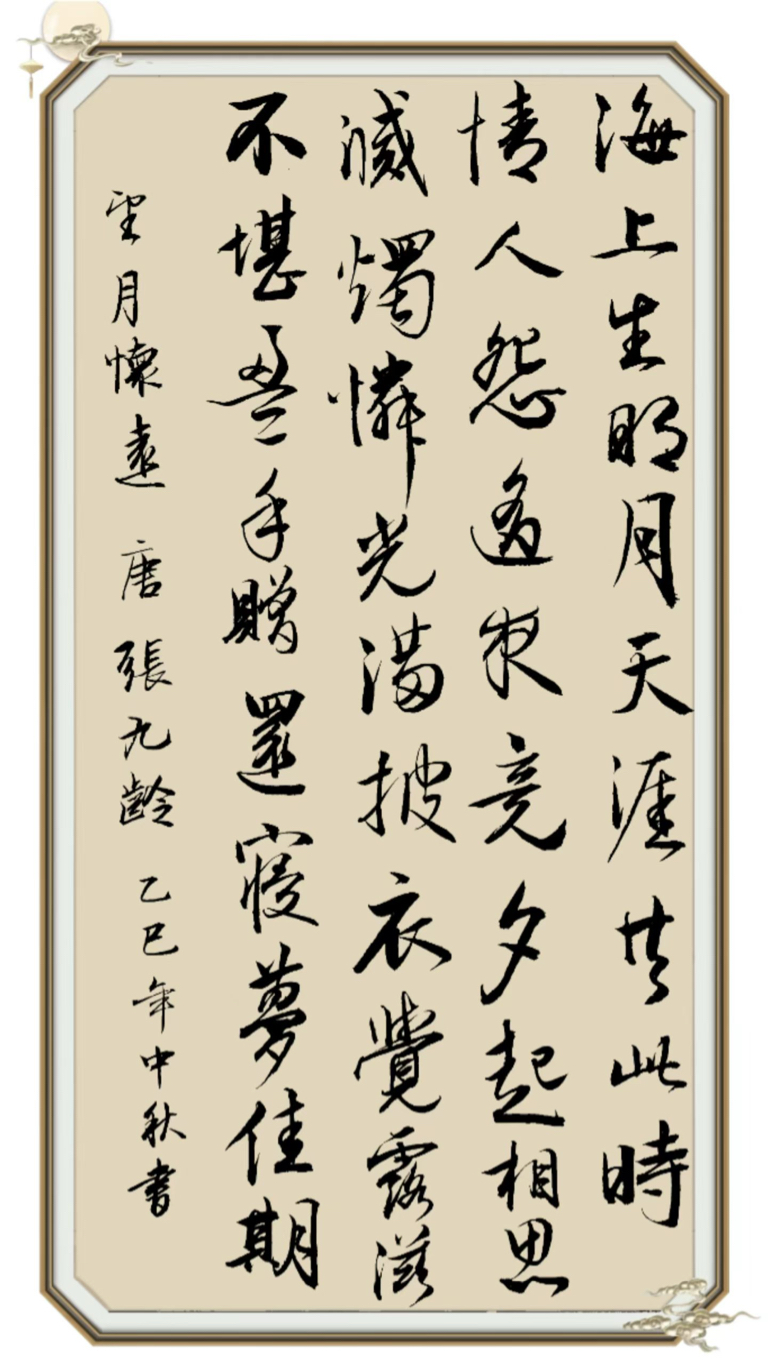 海上生明月天涯共此時
情人怨遙夜竟夕起相思
滅燭憐光滿披衣覺露滋
不堪盈手贈還寢夢佳期
望月懷遠 唐 張九齡 乙巳年中秋書